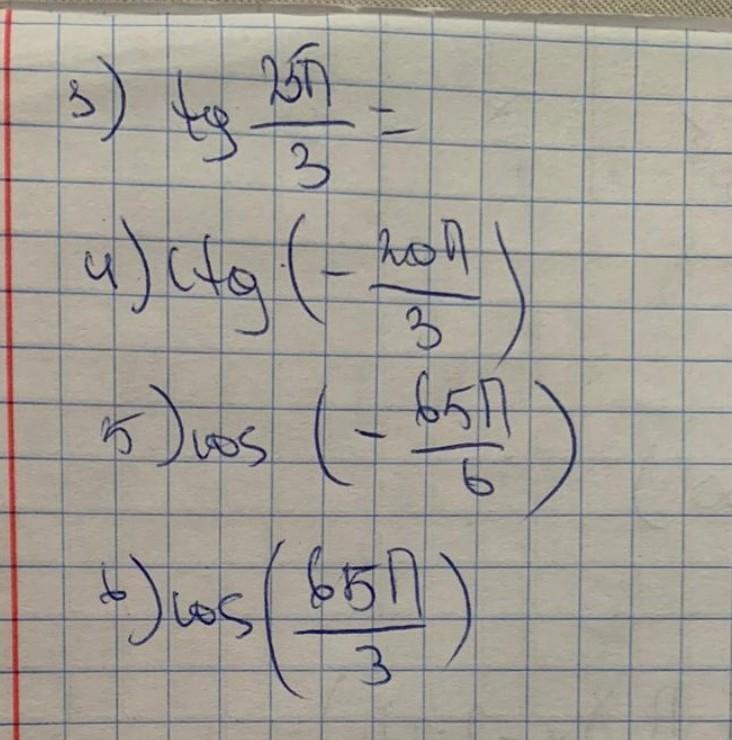 3) tg 25π/3 =
4) ctg (- 20π/3)
5) cos (- 65π/6)
6) cos (65π/3)